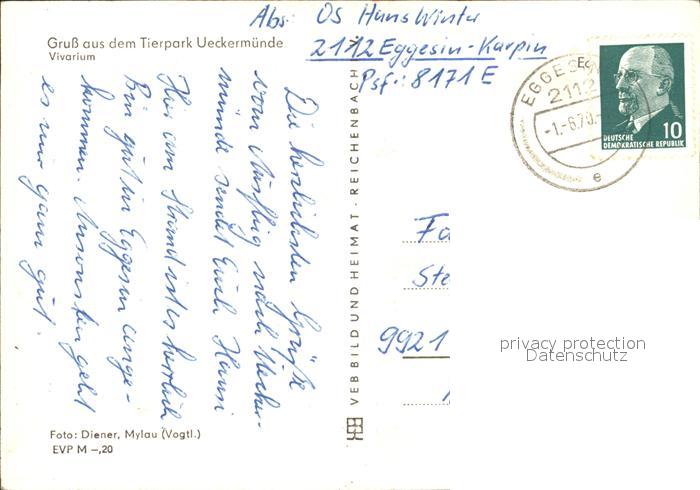 Abs: OS Hans Winter
2112 Eggesin-Karpin
Psf.: 8171 E
Gruß aus dem Tierpark Ueckermünde
Vivarium
Die herzlichsten Grüße
vom Ausflug nach Uecker-
münde sendet Euch Hansi
Hier am Strand ist es herrlich
Bin gut in Eggesin ange-
kommen. Ansonsten geht
es mir ganz gut.
VEB BILD UND HEIMAT · REICHENBACH
EGGESIN
2112
-1.-6.70.-
e
DEUTSCHE
DEMOKRATISCHE REPUBLIK
10
Fa
Ste
9921
privacy protection
Datenschutz
Foto: Diener, Mylau (Vogtl.)
EVP M –,20